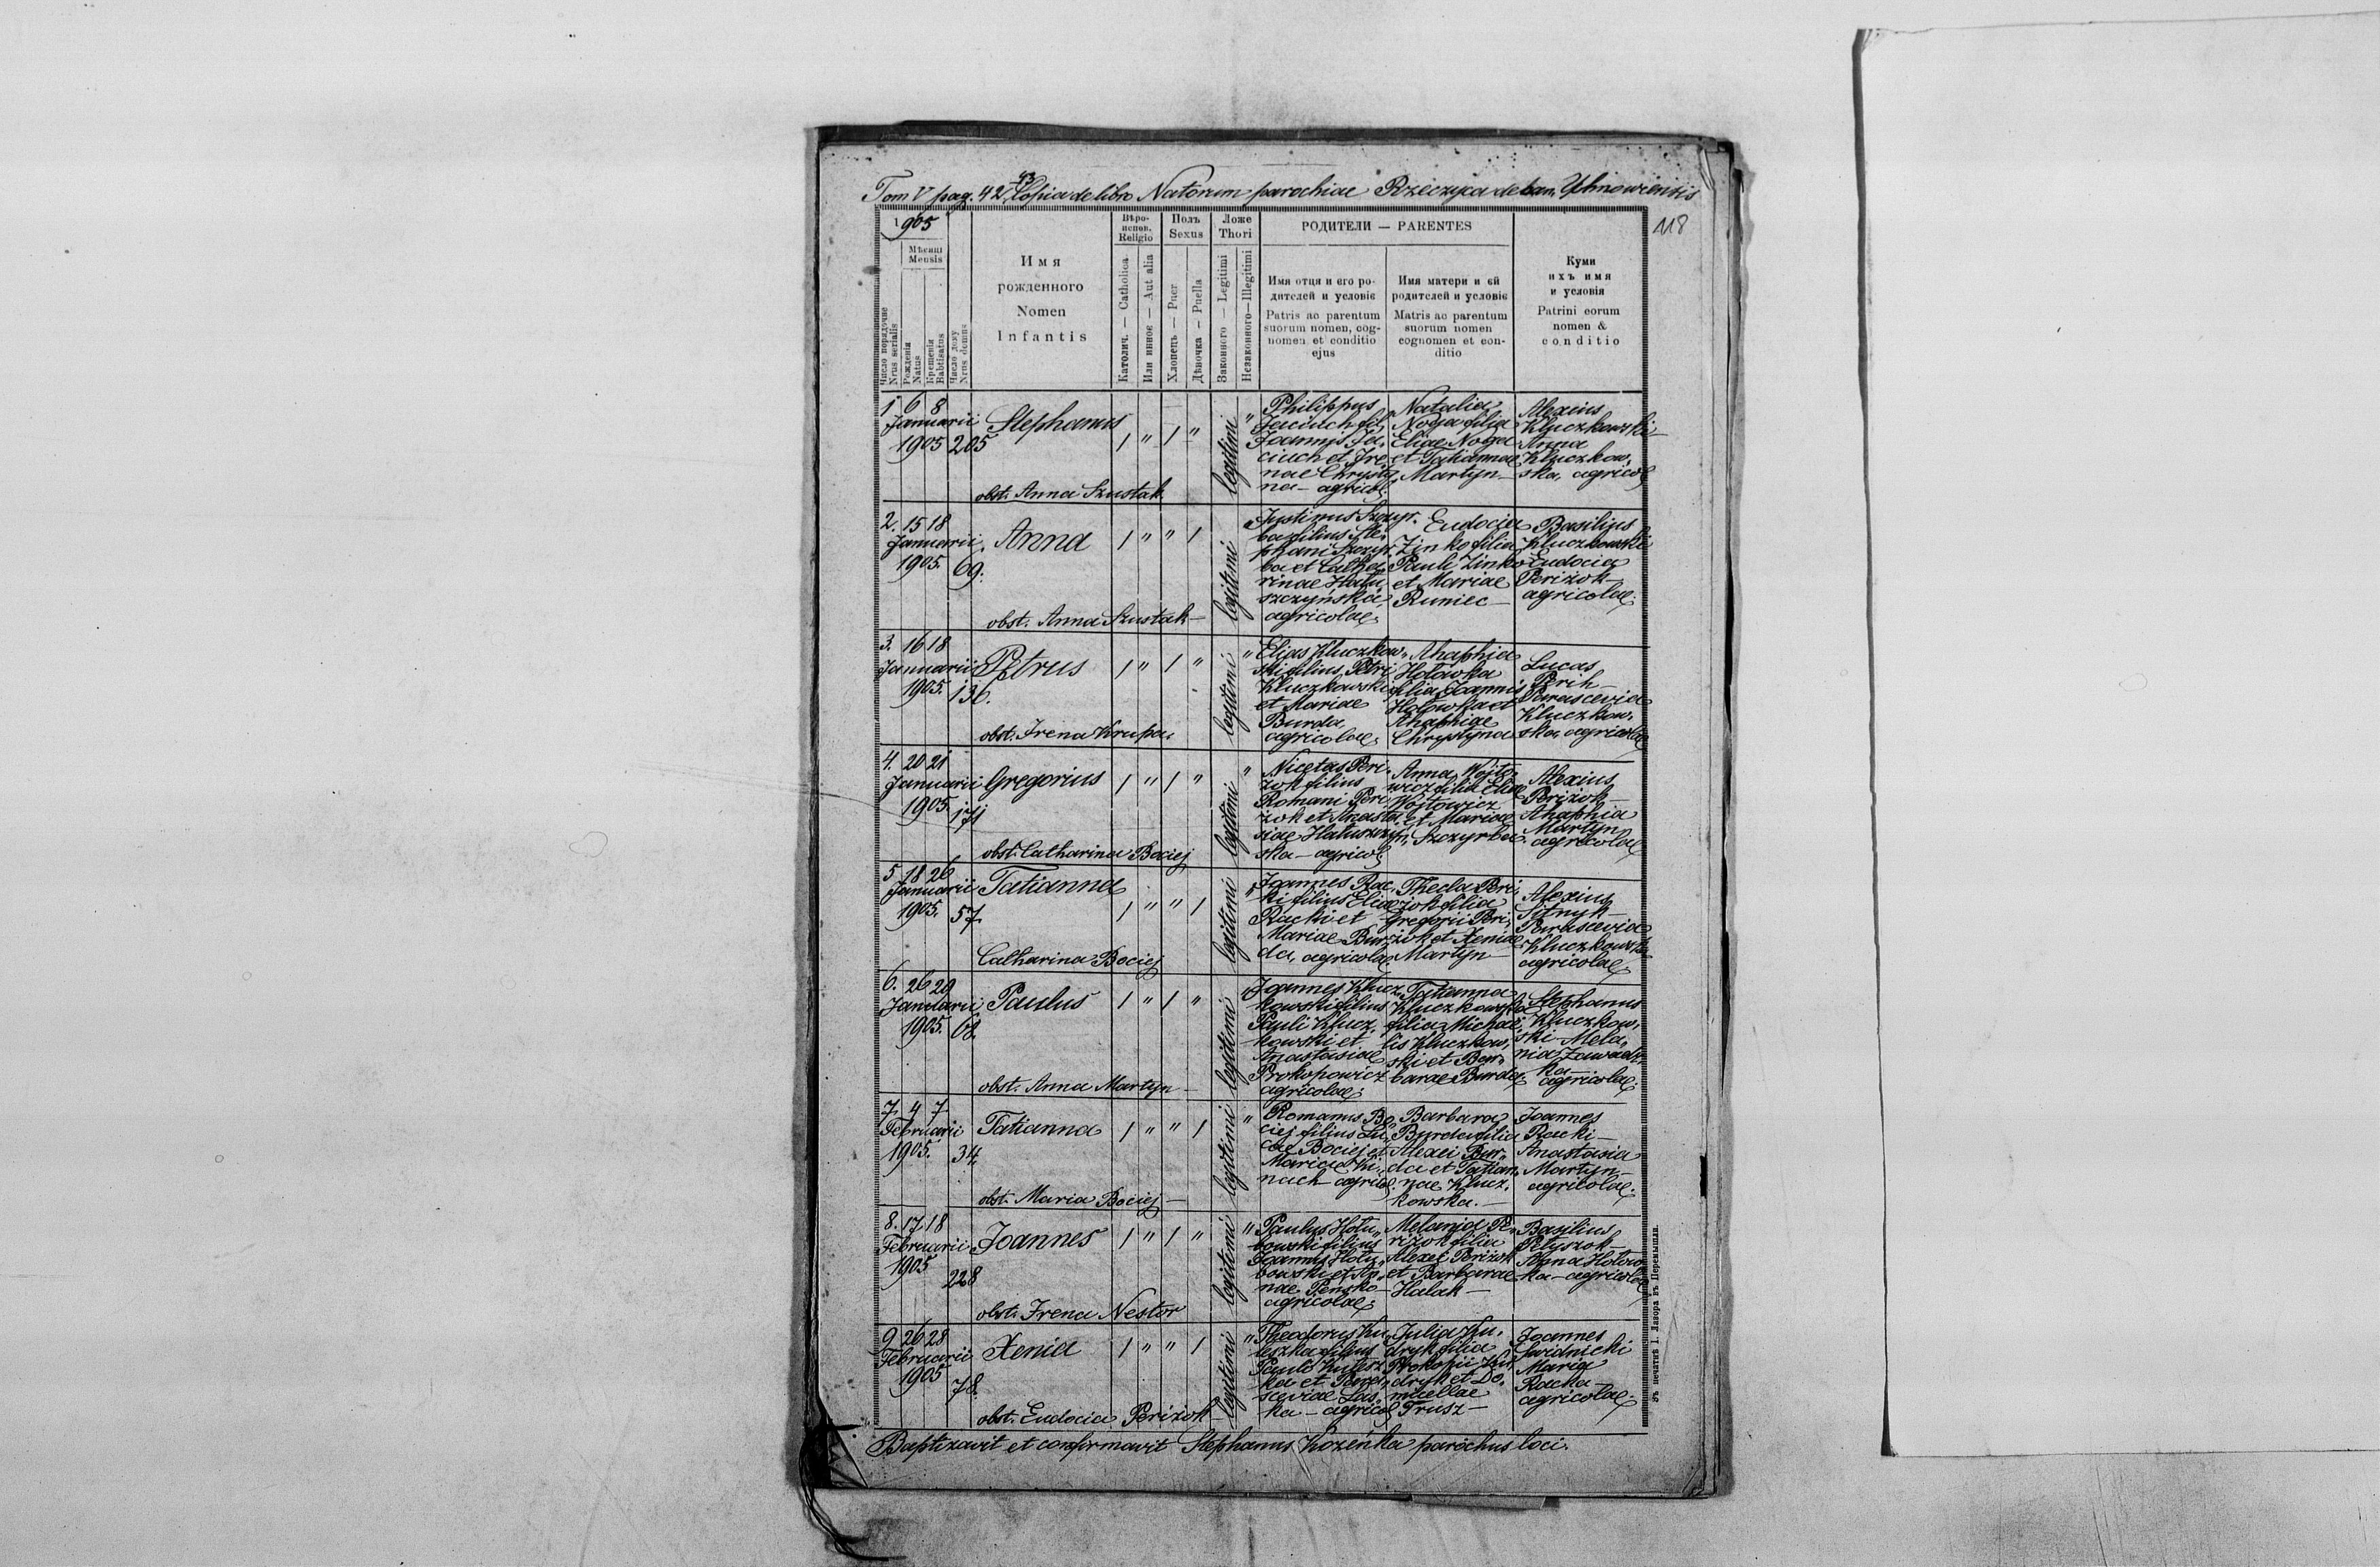 Tom V pag. 42, 43 Copia de libro Natorum parochiae Rzeczyca decan. Uhnowiensis
118
1905
Мѣсяцъ
Mensis
Число порядочне
Nrus serialis
Рожденія
Natus
Крещенія
Babtisatus
Число дому
Nrus domus
Имя
рожденного
Nomen
Infantis
Вѣро-
испов.
Religio
Католич. — Catholica
Или инное — Aut alia
Полъ
Sexus
Хлопецъ — Puer
Дѣвочка — Puella
Ложе
Thori
Законного — Legitimi
Незаконного — Illegitimi
РОДИТЕЛИ — PARENTES
Имя отця и его ро-
дителей и условіє
Patris ac parentum
suorum nomen, cog-
nomen et conditio
ejus
Имя матери и єй
родителей и условіє
Matris ac parentum
suorum nomen
cognomen et con-
ditio
Куми
ихъ имя
и условія
Patrini eorum
nomen &
conditio
1 6 8
Januarii
1905 205
Stephanus
obst. Anna Szustak
1 " 1 "
legitimi "
Philippus
Jaciuch fil.
Joannis Ja,
ciuch et Ire,
nae Chrysty,
na – agricol.
Natalia
Noga filia
Eliae Noga
et Tatiannae
Martyn –
Alexius
Kluczkowski –
Anna
Kluczkow,
ska, agricol.
2. 15 18
Januarii
1905. 69.
Anna
obst. Anna Szustak –
1 " " 1
legitimi
Justinus Szczyr.
ba filius Ste,
phani Szczyr,
ba et Catha,
rinae Hatu,
szczyńska,
agricolae.
Eudocia
Zinko filia
Pauli Zinko
et Mariae
Runiec –
Basilius
Kluczkowski
Eudocia
Periżok –
agricolae.
3. 16 18
Januarii
1905. 136.
Petrus
obst. Irena Krupa
1 " 1 "
legitimi "
Elias Kluczkow,
ski filius Petri
Kluczkowski
et Mariae
Burda
agricolae.
Ahaphia
Hołowka
filia Joannis
Hołowka et
Ahaphiae
Chrystyna
Lucas
Perih –
Parascevia
Kluczkow,
ska, agricolae
4. 20 21
Januarii
1905. 171
Gregorius
obst. Catharina Bociej
1 " 1 "
legitimi "
Nicetas Peri,
żok filius
Romani Peri,
żok et Anasta,
siae Hatuszczyn,
ska – agricol.
Anna Wojto,
wicz filia Eliae
Wojtowicz
et Mariae
Szczyrba
Alexius
Periżok –
Ahaphia
Martyn
agricolae
5 18 26
Januarii
1905. 57.
Tatianna
Catharina Bociej
1 " " 1
legitimi "
Joannes Rac,
ki filius Eliae
Racki et
Mariae Bur,
da, agricolae
Thecla Peri,
żok filia
Gregorii Peri,
żok et Xeniae
Martyn –
Alexius
Sitnyk –
Parascevia
Kluczkowska
agricolae
6. 26 29
Januarii
1905. 68.
Paulus
obst. Anna Martyn –
1 " 1 "
legitimi "
Joannes Klucz,
kowski filius
Pauli Klucz,
kowski et
Anastasiae
Prokopowicz
agricolae.
Tatianna
Kluczkowska
filia Michae,
lis Kluczkow,
ski et Bar,
barae Burda
Stephanus
Kluczkow,
ski Mela,
nia Zawadz,
ka –
agricolae.
7. 4 7
Februarii
1905. 34.
Tatianna
obst. Maria Bociej –
1 " " 1
legitimi "
Romanus Bo,
ciej filius Lu,
cae Bociej et
Mariae Ki,
nach – agricol.
Barbara
Burda filia
Alexei Bur,
da et Tatian,
nae Klucz,
kowska. –
Joannes
Racki –
Anastasia
Martyn –
agricolae.
8. 17 18
Februarii
1905 228
Joannes
obst. Irena Nestor
1 " 1 "
legitimi "
Paulus Hołu,
bowski filius
Joannis Hołu,
bowski et An,
nae Penzko –
agricolae.
Melania Pe,
riżok filia
Alexei Periżok
et Barbarae
Halak –
Basilius
Pelyszok –
Anna Hołow,
ka – agricolae
9 26 28
Februarii
1905 78.
Xenia
obst. Eudocia Periżok –
1 " " 1
legitimi "
Theodorus Ku,
leszka filius
Pauli Kulesz,
ka et Paras,
seviae Las,
ka – agricol.
Julia Ku,
dryk filia
Prokopii Ku,
dryk et Do,
micellae
Trusz –
Joannes
Swidnicki
Maria
Racka –
agricolae.
Baptizavit et confirmavit Stephanus Kozeńka parochus loci.
зъ печатнѣ І. Лазора въ Перемышли